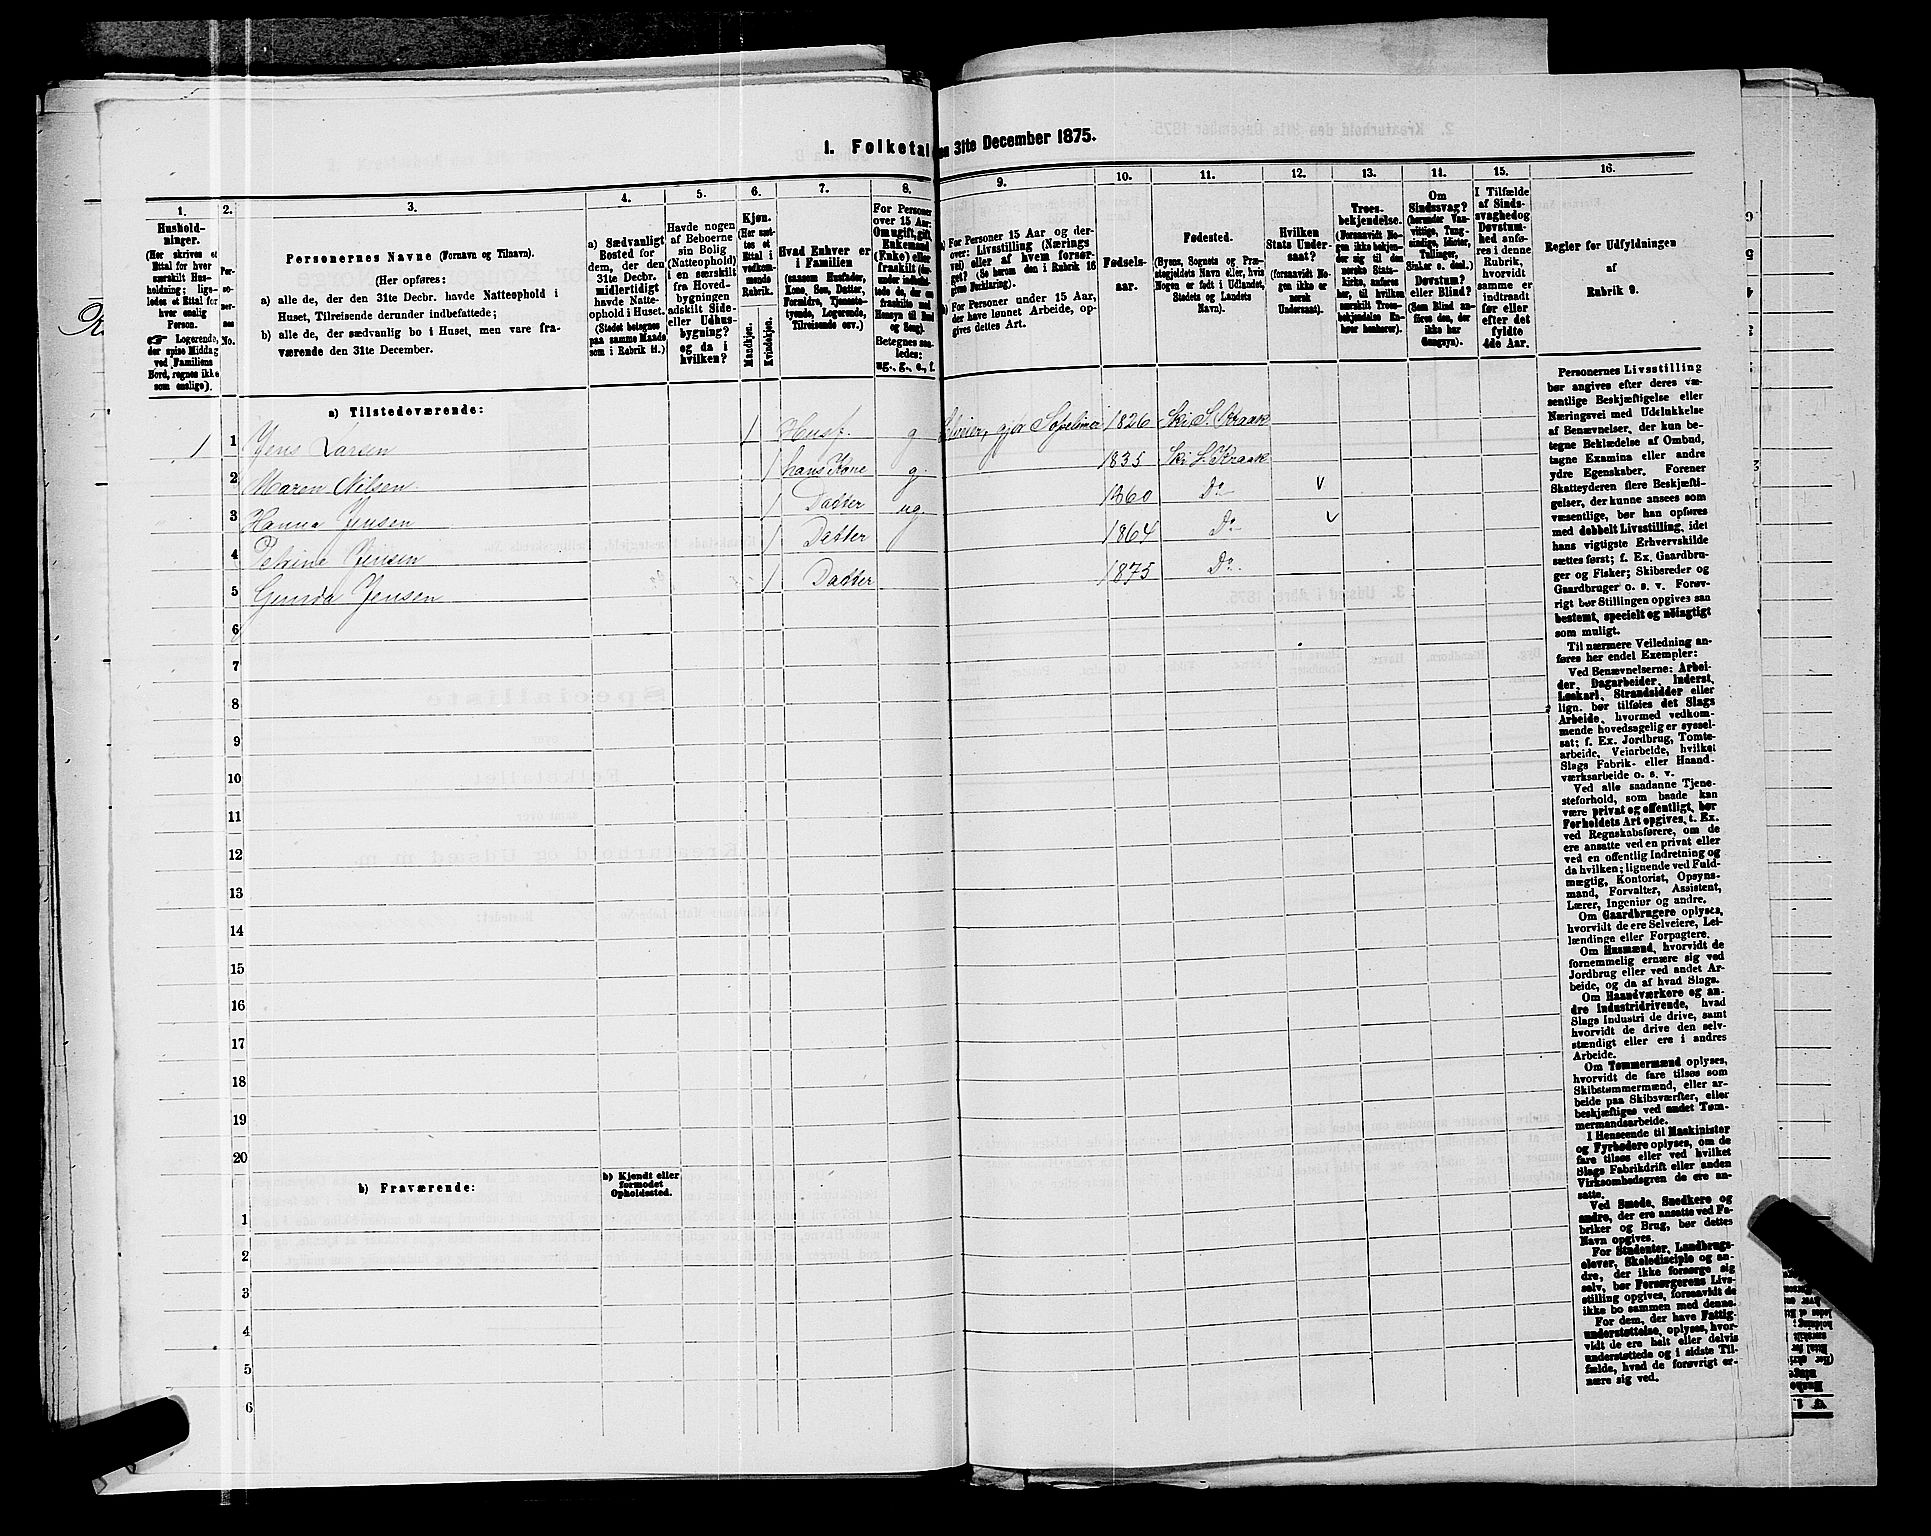 1. Folketal
en 31te December 1875.
1.
2.
3.
4.
5.
6.
7.
8.
9.
10.
11.
12.
13.
14.
15.
16.
Hushold-
ninger.
(Her skrives et
Ettal for hver
særskilt Hus-
holdning; lige-
ledes et Ettal for
hver enslig
Person.
☞ Logerende,
der spise Middag
ved Familiens
Bord, regnes ikke
som enslige).
Per-
so-
ner-
nes
No.
Personernes Navne (Fornavn og Tilnavn).
(Her opføres:
a) alle de, der den 31te Decbr. havde Natteophold i
Huset, Tilreisende derunder indbefattede;
b) alle de, der sædvanlig bo i Huset, men vare fra-
værende den 31te December.
a) Sædvanligt
Bosted for
dem, der den
31te Decbr.
midlertidigt
havde Natte-
ophold i Huset.
(Stedet betegnes
paa samme Maade
som i Rubrik 11.)
Havde nogen
af Beboerne
sin Bolig
(Natteophold)
i en særskilt
fra Hoved-
bygningen
adskilt Side-
eller Udhus-
bygning?
og da i
hvilken?
Kjøn.
(Her sæt-
tes et
Ettal i
vedkom-
mende
Rubrik.
Mandkjøn.
Kvindekjøn.
Hvad Enhver er
i Familien
(saasom Husfader,
Kone, Søn, Datter,
Forældre, Tjeneste-
tyende, Logerende,
Tilreisende osv.)
For Personer
over 15 Aar:
Om ugift, gift,
Enkemand
(Enke) eller
fraskilt
Betegnes saa-
ledes:
ug., g., e., f.
a) For Personer 15 Aar og der-
over: Livsstilling (Nærings
vei) eller af hvem forsør-
get? (Se herom den i Rubrik 16
givne Forklaring).
b) For Personer under 15 Aar,
der have lønnet Arbeide, op-
gives dettes Art.
Fødsels-
aar.
Fødested.
(Byens, Sognets og Præ-
stegjeldets Navn eller, hvis
Nogen er født i Udlandet,
Stedets og Landets
Navn).
Hvilken
Stats Under-
saat?
(forsaavidt No-
gen ikke er
norsk
Undersaat).
Troes-
bekjendelse.
(Forsaavidt No-
gen ikke bekjen-
der sig til den
norske Stats-
kirke, anføres
her, til hvilken
norsk Troes-
bekjendelse En-
hver henhører).
Om
Sindssvag?
(herunder Van-
vittige, Tung-
sindige, Idioter,
Sinker o. desl.)
Døvstum?
eller Blind?
(Som Blind an-
føres den, der
ikke har
Gangsyn).
I Tilfælde
af Sinds-
svaghed og
Døvstum-
hed anfø-
res i denne
Rubrik,
hvorvidt
samme er
indtraadt
før eller
efter det
fyldte
4de Aar.
Regler for Udfyldningen
af
Rubrik 9.
a) Tilstedeværende:
1 1 Jens Larsen 1 Husf. g gjør 1826 Ski S. Kraak
2 Maren Nilsen 1 hans Kone g. 1835 Ski S. Kraak
3 Hanna Jensen 1 Datter ug. 1860 Do v
4 Petrine Jensen 1 Datter 1864 Do. v
5 Gunda Jensen 1 Datter 1875 Do.
6
7
8
9
10
11
12
13
14
15
16
17
18
19
20
b) Fraværende:
b) Kjendt eller
formodet
Opholdssted.
1
2
3
4
5
6
Personernes Livsstilling
bør angives efter deres væ-
sentlige Beskjæftigelse eller
Næringsvei med Udelukkelse
af Benævnelser, der kun be-
tegne Beklædelse af Ombud,
tagne Examina eller andre
ydre Egenskaber. Forener
Skatteyderen flere Beskjæfti-
gelser, der kunne ansees som
væsentlige, bør han opføres
med dobbelt Livsstilling, idet
hans vigtigste Erhvervskilde
sættes først; f. Ex. Gaardbru-
ger og Fisker; Skibsreder og
Gaardbruger o. s. v. Forøv-
rigt bør Stillingen opgives saa
bestemt, specielt og nøiagtigt
som muligt.
Til nærmere Veiledning an-
føres her endel Exempler:
Ved Benævnelserne: Arbei-
der, Dagarbeider, Inderst,
Løskarl, Strandsidder eller
lign. bør tilføies det Slags
Arbeide, hvormed vedkom-
mende hovedsagelig er syssel-
sat; f. Ex. Jordbrug, Tomte-
arbeide, Veiarbeide, hvilket
Slags Fabrik- eller Haand-
værksarbeide o. s. v.
Ved alle saadanne Tjene-
steforhold, som baade kan
være privat og offentligt, bør
Forholdets Art opgives, t. Ex.
ved Regnskabsførere, om de
ere ansatte ved en privat eller
ved en offentlig Indretning og
da hvilken; lignende ved Fuld-
mægtig, Kontorist, Opsyns-
mand, Forvalter, Assistent,
Lærer, Ingeniør og andre.
Om Gaardbrugere oplyses,
hvorvidt de ere Selveiere, Lei-
lændinge eller Forpagtere.
Om Husmænd, hvorvidt de
fornemmelig ernære sig ved
Jordbrug eller ved andet Ar-
beide, og da af hvad Slags.
Om Haandværkere og an-
dre Industridrivende, hvad
Slags Industri de drive, samt
hvorvidt de drive den selv-
stændigt eller ere i andres
Arbeide.
Om Tømmermænd oplyses,
hvorvidt de fare tilsøs som
Skibstømmermænd, eller ar-
beide paa Skibsværfter, eller
beskjæftiges ved andet Tøm-
mermandsarbeide.
I Henseende til Maskinister
og Fyrbødere oplyses, om de
fare tilsøs eller ved hvilket
Slags Fabrikdrift eller anden
Virksomhedsgren de ere an-
satte.
Ved Smede, Snedkere og
andre, der ere ansatte ved Fa-
briker og Brug, bør dettes
Navn opgives.
For Studenter, Landbrugs-
elever, Skoledisciple og an-
dre, der ikke forsørge sig
selv, bør Forsørgerens Livs-
stilling opgives, forsaavidt de
ikke bo sammen med denne.
For dem, der have Fattig-
understøttelse, oplyses, hvor-
vidt de ere helt eller delvis
understøttede og i sidste Til-
fælde, hvad de forøvrigt er-
nære sig ved.